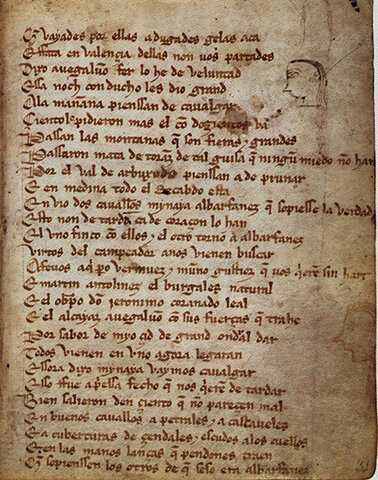 Q̃ vayades por ellas adugades gelas aca
Ffata en valençia dellas non vos partades
Dixo auegaluo fer lo he de veluntad
Essa noch conducho les dio grand
Ala mañana pienssan de caualgar
Çientol pidieron mas el cõ dozientos va
Passan las montanas q̃ son fieras grandes
Passaron mata de toranz de tal guisa q̃ ningũ miedo nõ han
Por el val de arbuxuelo pienssan a deprunar
E en medina todo el Recabdo esta
Envio dos caualleros mynaya albarfanez q̃ sopiesse la verdad
Esto non detarda ca de coraçon lo han
El vno finco cõ ellos el otro torno a albarfanez
Virtos del campeador anos vienen buscar
Afeuos aq̃ pero vermuez muño gustioz q̃ vos q̃eren sin hart
E martin antolinez el burgales natural
E el obpo dõ jeronimo coranado leal
E el alcayaz auegaluo cõ sus fuerças q̃ trahe
Por sabor de myo çid de grand ondral dar
Todos vienen en vno agora legaran
Essora dixo mynaya vaymos caualgar
Esso ffue apriessa fecho q̃ nos q̃eren de tardar
Bien salieron den çiento q̃ nõ pareçen mal
En buenos cauallos a petrales a cascaueles
E a cuberturas de çendales escudos alos cuellos
E en las manos lanças q̃ pendones traen
Q̃ sopienssen los otros de q̃ seso era albarfanez